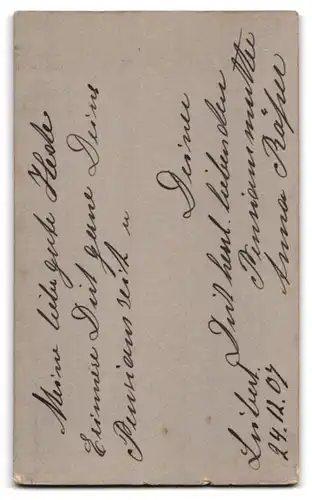 Meine liebe gute Hede
Erinnere Dich gerne Deiner
Pensionszeit u
Deiner
Dich herzl. liebenden
Pensionsmutter
Anna Käfer
24.12.07